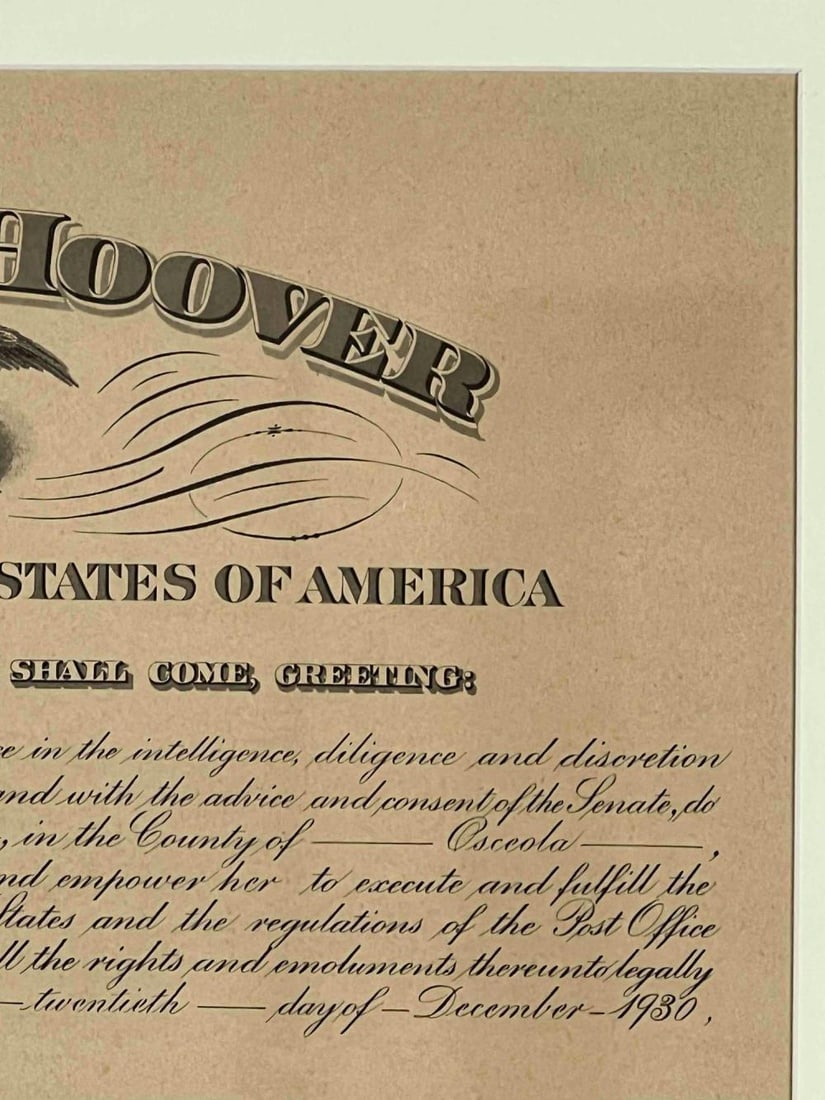 HOOVER
STATES OF AMERICA
SHALL COME, GREETING:
in the intelligence, diligence and discretion
and with the advice and consent of the Senate, do
, in the County of — Osceola —,
empower her to execute and fulfill the
States and the regulations of the Post Office
the rights and emoluments thereunto legally
— twentieth — day of — December – 1930,